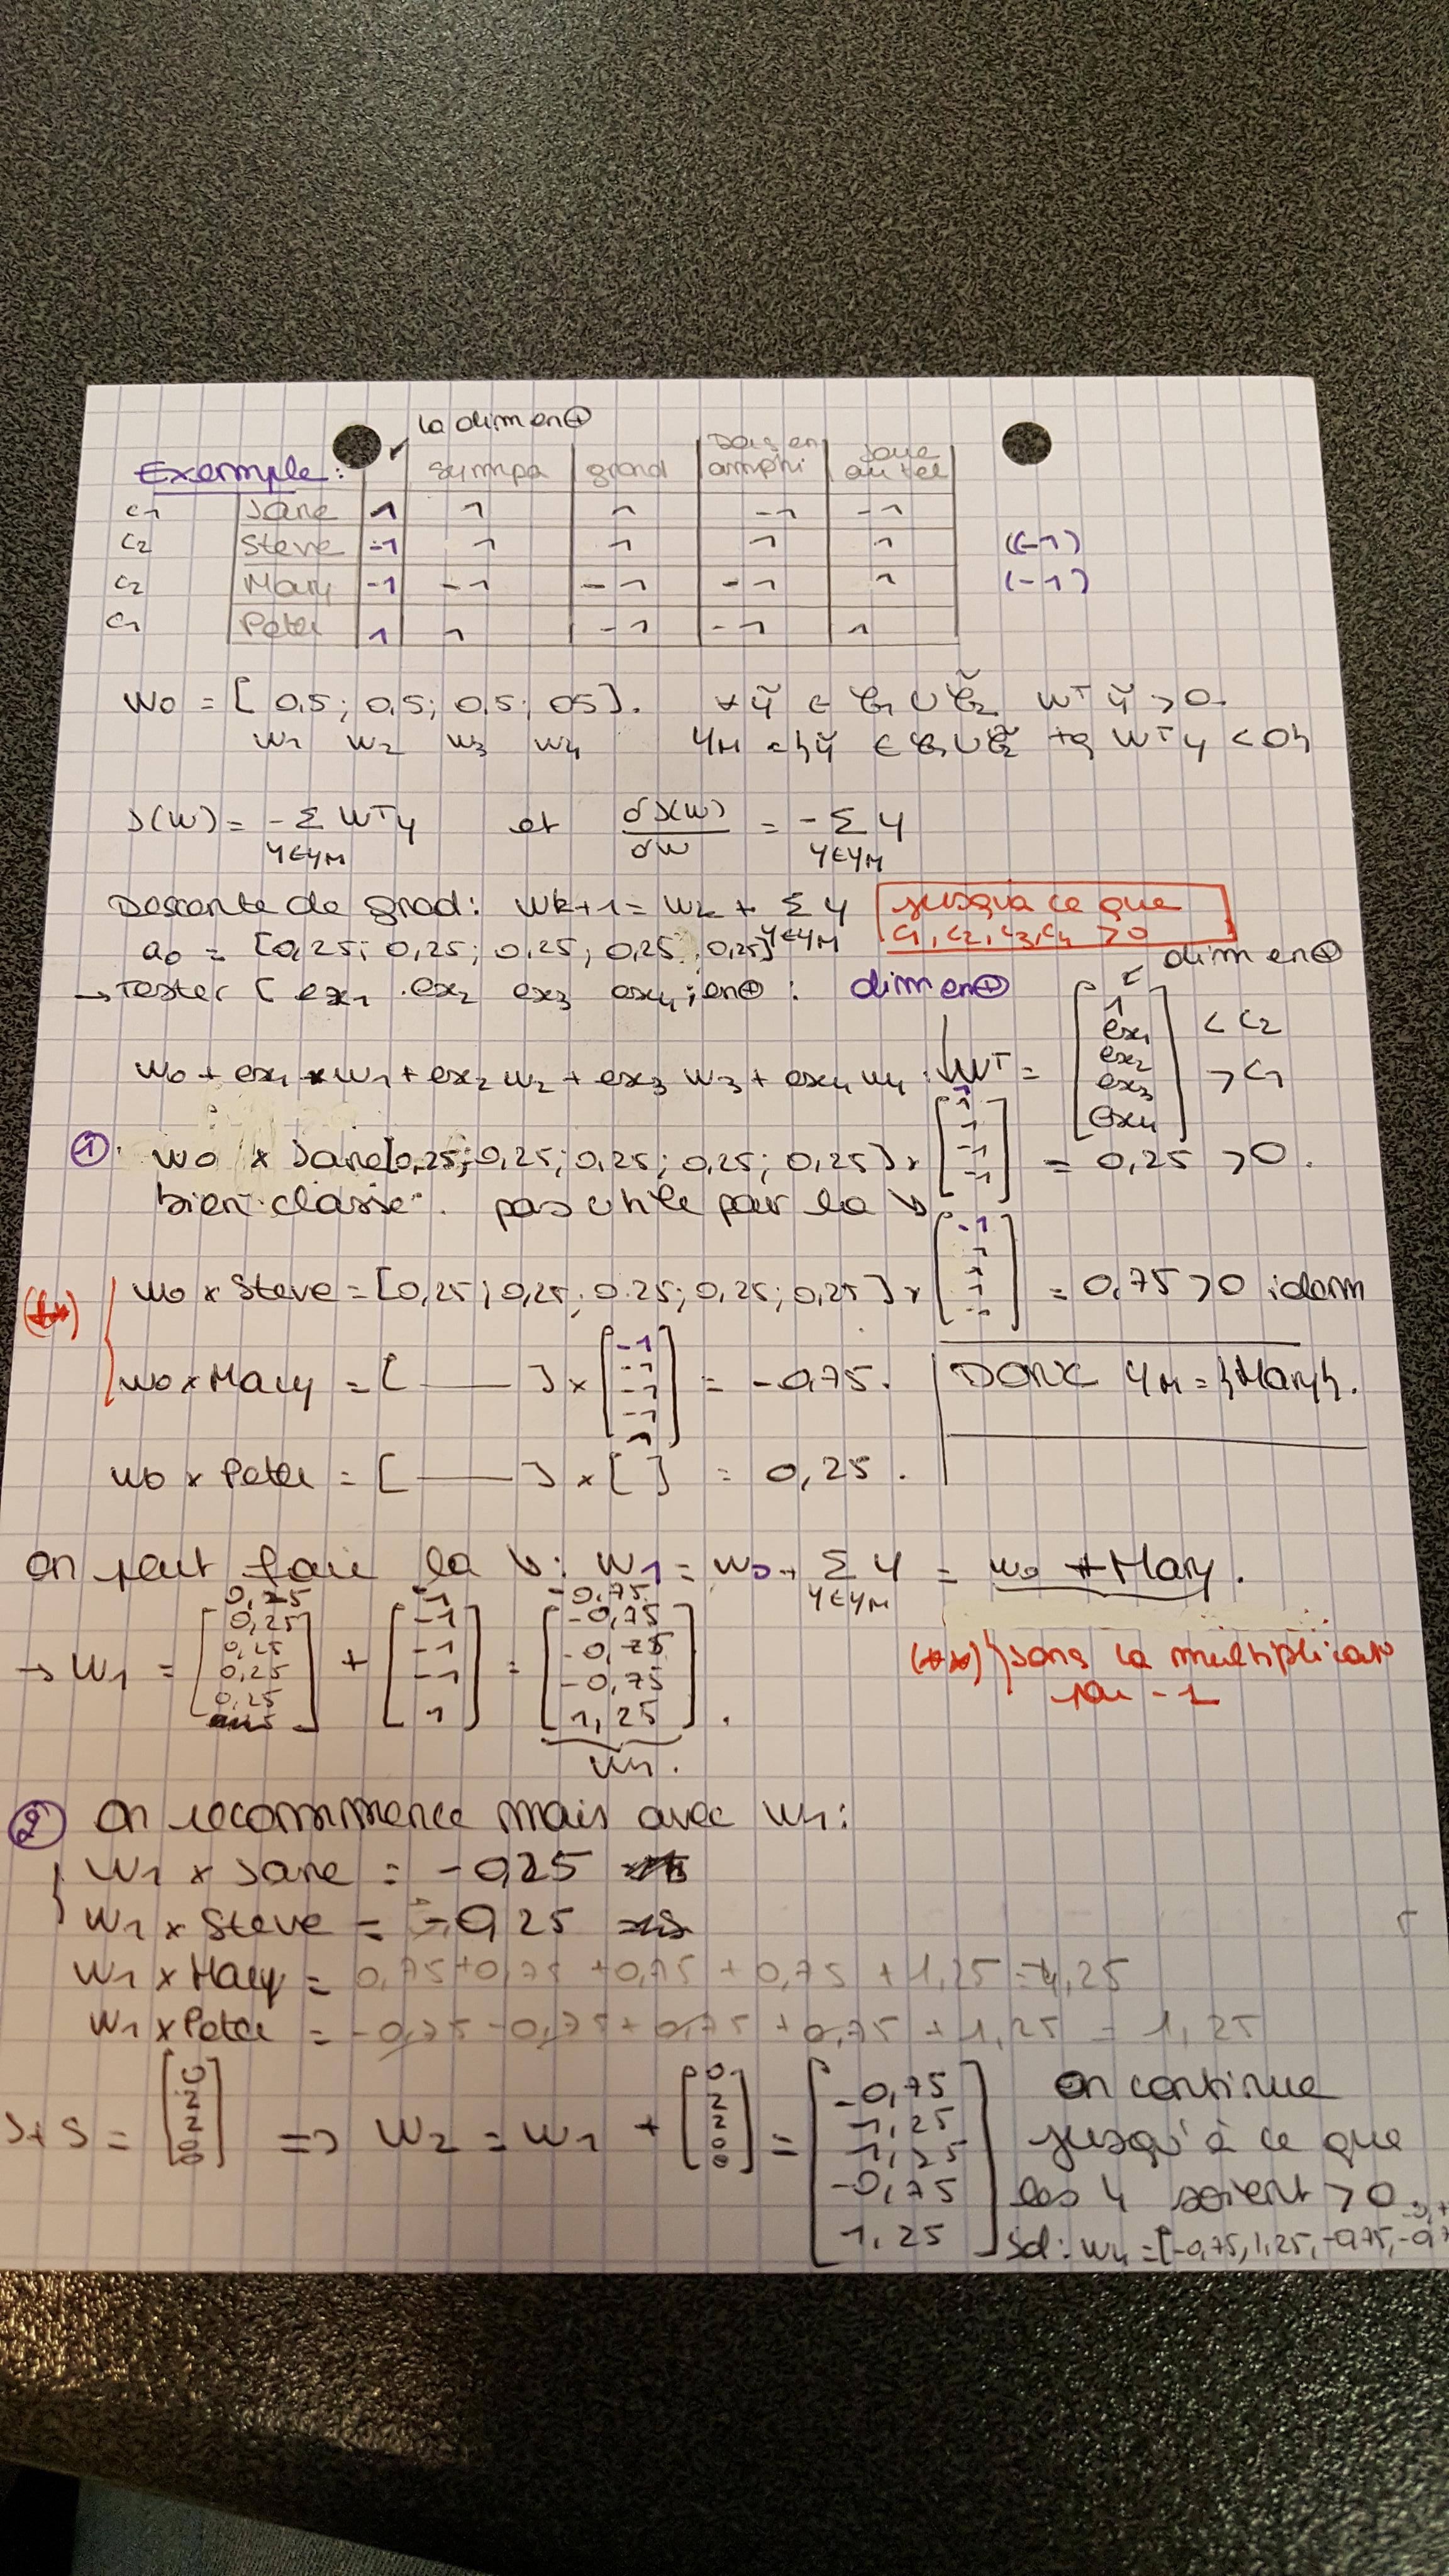 la dimen⊕
Exemple : sympa grand Dors en amphi Joue au tel
C1 Jane 1 1 1 -1 -1
C2 Steve -1 1 1 1 1 (-1)
C2 Mary -1 -1 -1 -1 1 (-1)
C1 Peter 1 1 -1 -1 1
W0 = [ 0,5 ; 0,5 ; 0,5 ; 05 ]. ∀ỹ ∈ C1 ∪ C̃2 WT ỹ > 0.
W1 W2 W3 W4 YM = {ỹ ∈ C1 ∪ C̃2 tq WT y < 0}
J(W) = - Σ WT y et δJ(W) / δW = - Σ y
y∈YM y∈YM
Descente de grad : Wk+1 = Wk + Σ y jusqu'a ce que
y∈YM c1, c2, c3, c4 > 0
a0 = [0,25 ; 0,25 ; 0,25 ; 0,25 ; 0,25]
→ Tester [ ex1 ex2 ex3 ex4 ; en⊕ : dimen⊕ dimen⊕
W0 + ex1 × W1 + ex2 W2 + ex3 W3 + ex4 W4 . WT = [1 ex1 ex2 ex3 ex4] < C2 > C1
① W0 × Jane [0,25 ; 0,25 ; 0,25 ; 0,25 ; 0,25] × [1 1 1 -1 -1] = 0,25 > 0.
bien classé. pas utile pour la ↘
W0 × Steve = [0,25 ; 0,25 ; 0.25 ; 0,25 ; 0,25] × = 0,75 > 0 idem
W0 × Mary = [ — ] × = -0,75. DONC YM = {Mary}.
W0 × Peter = [ — ] × [ ] = 0,25.
on peut faire la ↘ : W1 = W0 + Σ y = W0 + Mary.
y∈YM
→ W1 = [0,25 0,25 0,25 0,25 0,25] + [-1 -1 -1 -1 1] = [-0,75 -0,75 -0,75 -0,75 1,25].
W1.
(**) } sans la multiplicat°
par -1
② on recommence mais avec W1 :
W1 × Jane = -0,25
W1 × Steve = -0,25
W1 × Mary = 0,75+0,75+0,75+0,75+1,25=4,25
W1 × Peter = -0,75-0,75+0,75+0,75+1,25=1,25
J+S = [0 2 2 0 0] => W2 = W1 + [0 2 2 0 0] = [-0,75 1,25 1,25 -0,75 1,25]
on continue
jusqu'à ce que
les 4 soient > 0.
Sol : W4 = [-0,75, 1,25, -0,75, -0,7